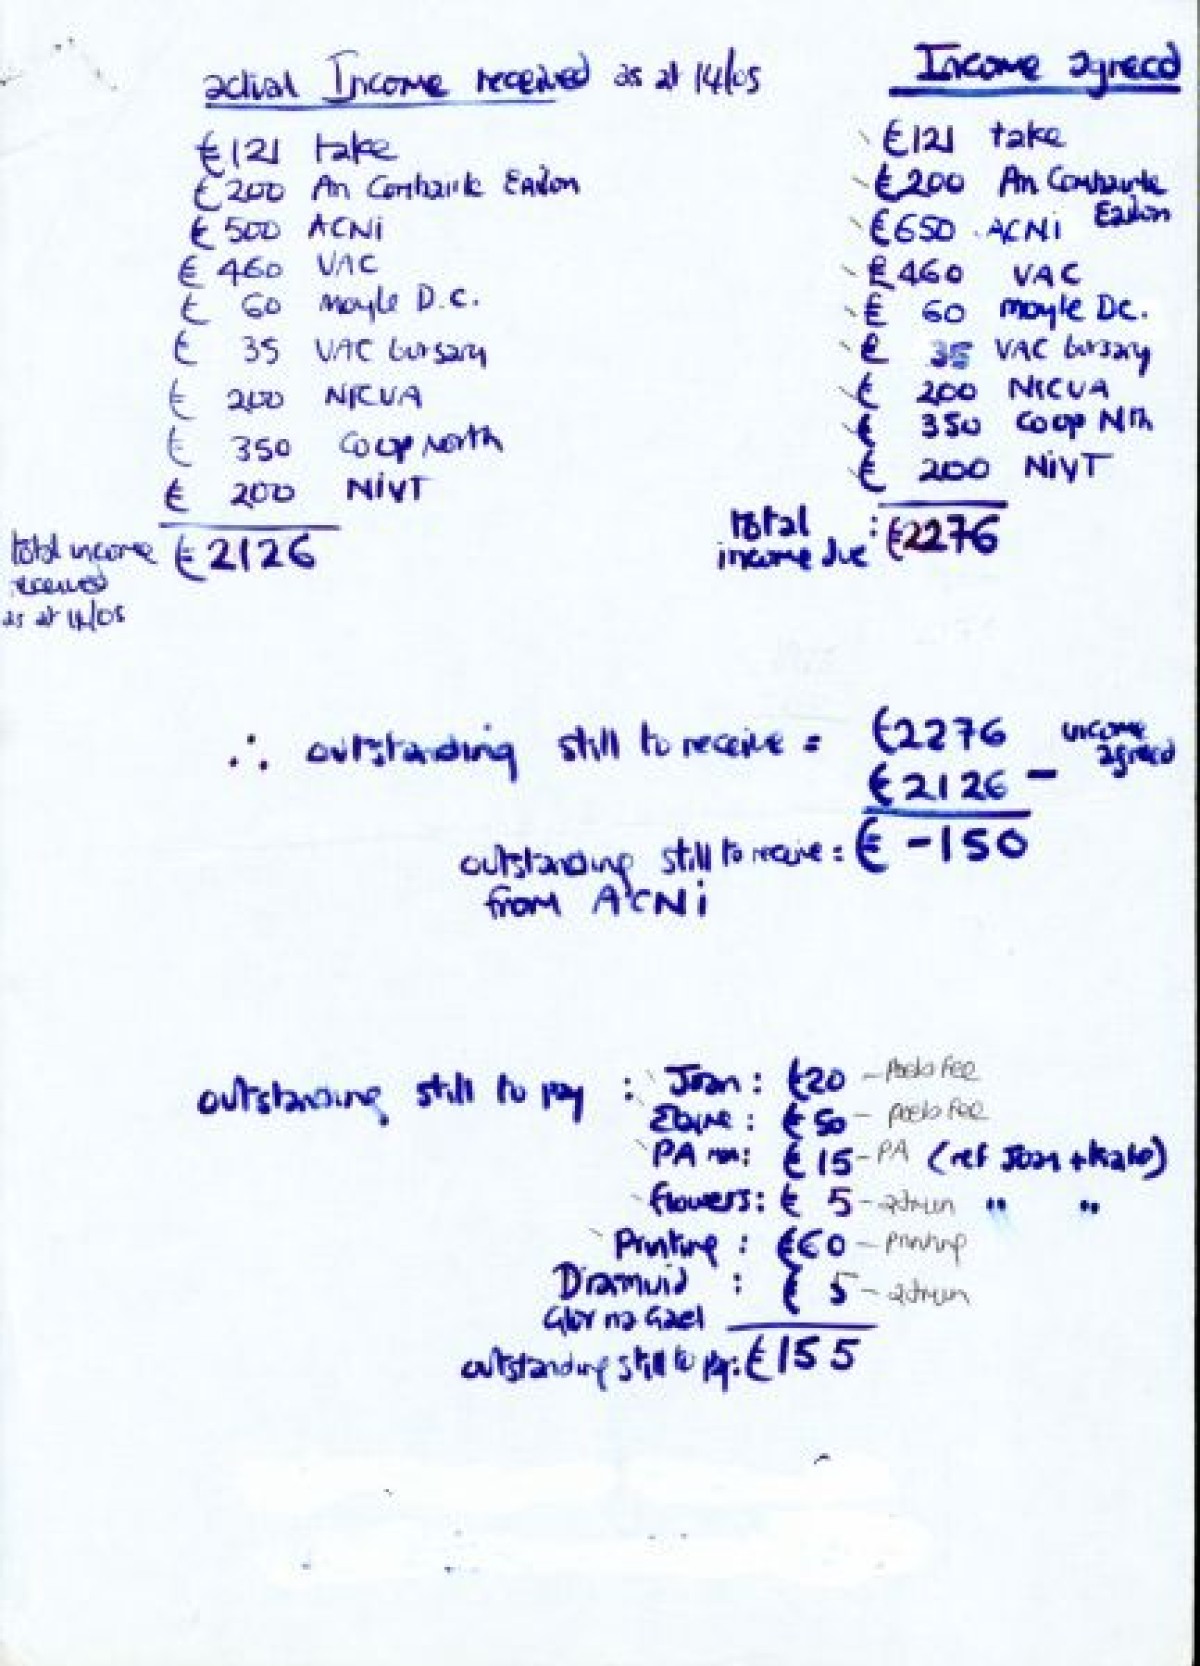 actual Income received as at 14/05
£121 take
£200 An Comhairle Ealon
£500 ACNi
£460 VAC
£ 60 moyle D.C.
£ 35 VAC bursary
£ 200 NICVA
£ 350 Coop North
£ 200 NIVT
total income received as at 14/05 £2126
Income agreed
£121 take
£200 An Comhairle
Ealon
£650 ACNi
£460 VAC
£ 60 moyle DC.
£ 35 VAC bursary
£ 200 NICVA
£ 350 Coop Nth
£ 200 NIVT
total income due : £2276
∴ outstanding still to receive = £2276 income agreed
£2126 -
outstanding still to receive : £ -150
from ACNi
outstanding still to pay : Joan : £20 - Poets Fee
Elaine : £50 - poets fee
PA : £15 - PA (ref Joan + Kate)
flowers : £ 5 - admin " "
Printing : £60 - printing
Diramuid : £ 5 - admin
Glor na Gael
outstanding still to pay : £155